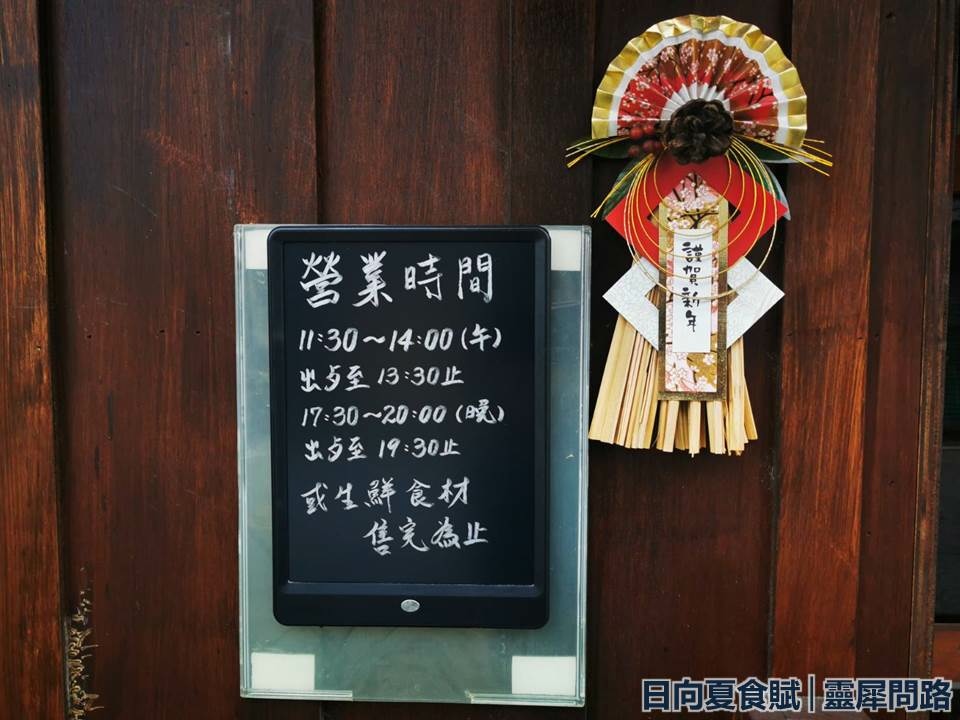 營業時間
11:30~14:00(午)
出歺至 13:30止
17:30~20:00(晚)
出歺至 19:30止
或生鮮食材
售完為止
謹賀新年
日向夏食賦|靈犀問路